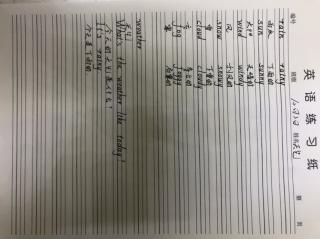 英语练习纸
编号 班级 姓名 天气
rain rainy
雨水 下雨的
sun sunny
太阳 晴朗的
wind windy
风 刮风的
snow snowy
cloud cloudy
云 多云的
fog foggy
雾
weather
天气
What's the weather like today?
It's rainy.